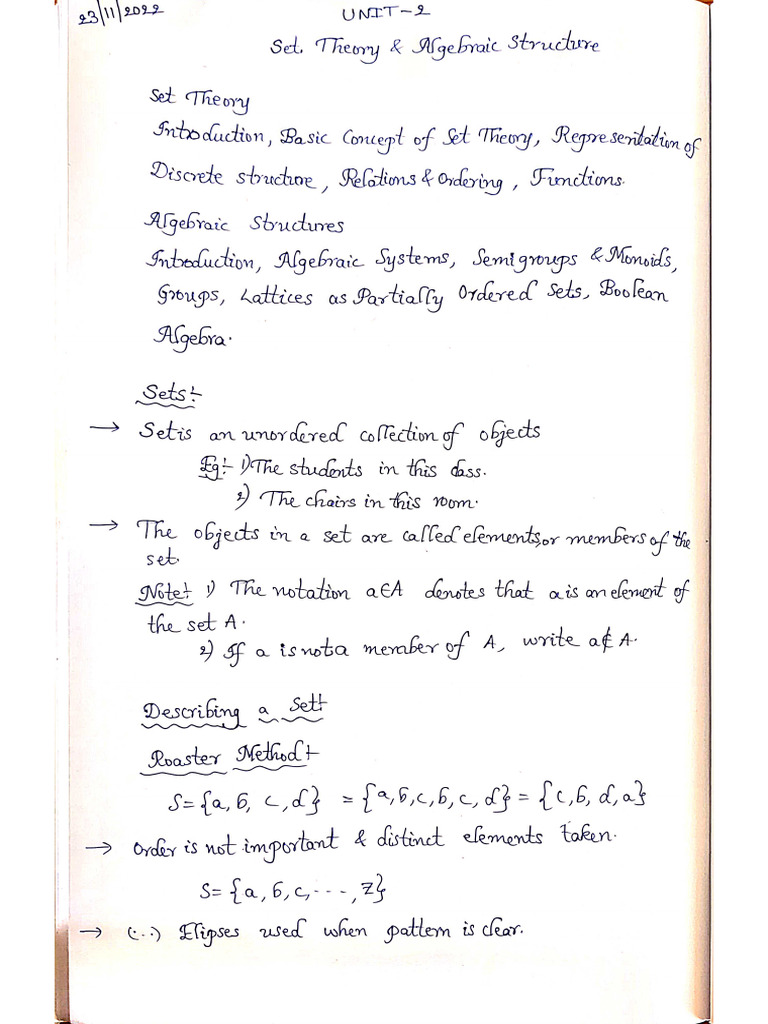 23/11/2022
UNIT-2
Set. Theory & Algebraic Structure
Set Theory
Introduction, Basic Concept of Set Theory, Representation of
Discrete structure, Relations & Ordering, Functions.
Algebraic Structures
Introduction, Algebraic Systems, Semigroups & Monoids,
Groups, Lattices as Partially Ordered Sets, Boolean
Algebra.
Sets:-
→ Set is an unordered collection of objects
Eg:- 1) The students in this class.
2) The chairs in this room.
→ The objects in a set are called elements, or members of the
set.
Note:- 1) The notation a∈A denotes that a is an element of
the set A.
2) If a is not a member of A, write a∉A.
Describing a Set:-
Roaster Method:-
S={a, b, c, d} = {a, b, c, b, c, d} = {c, b, d, a}
→ Order is not important & distinct elements taken.
S= {a, b, c, ..., z}
→ (...) Elipses used when pattern is clear.